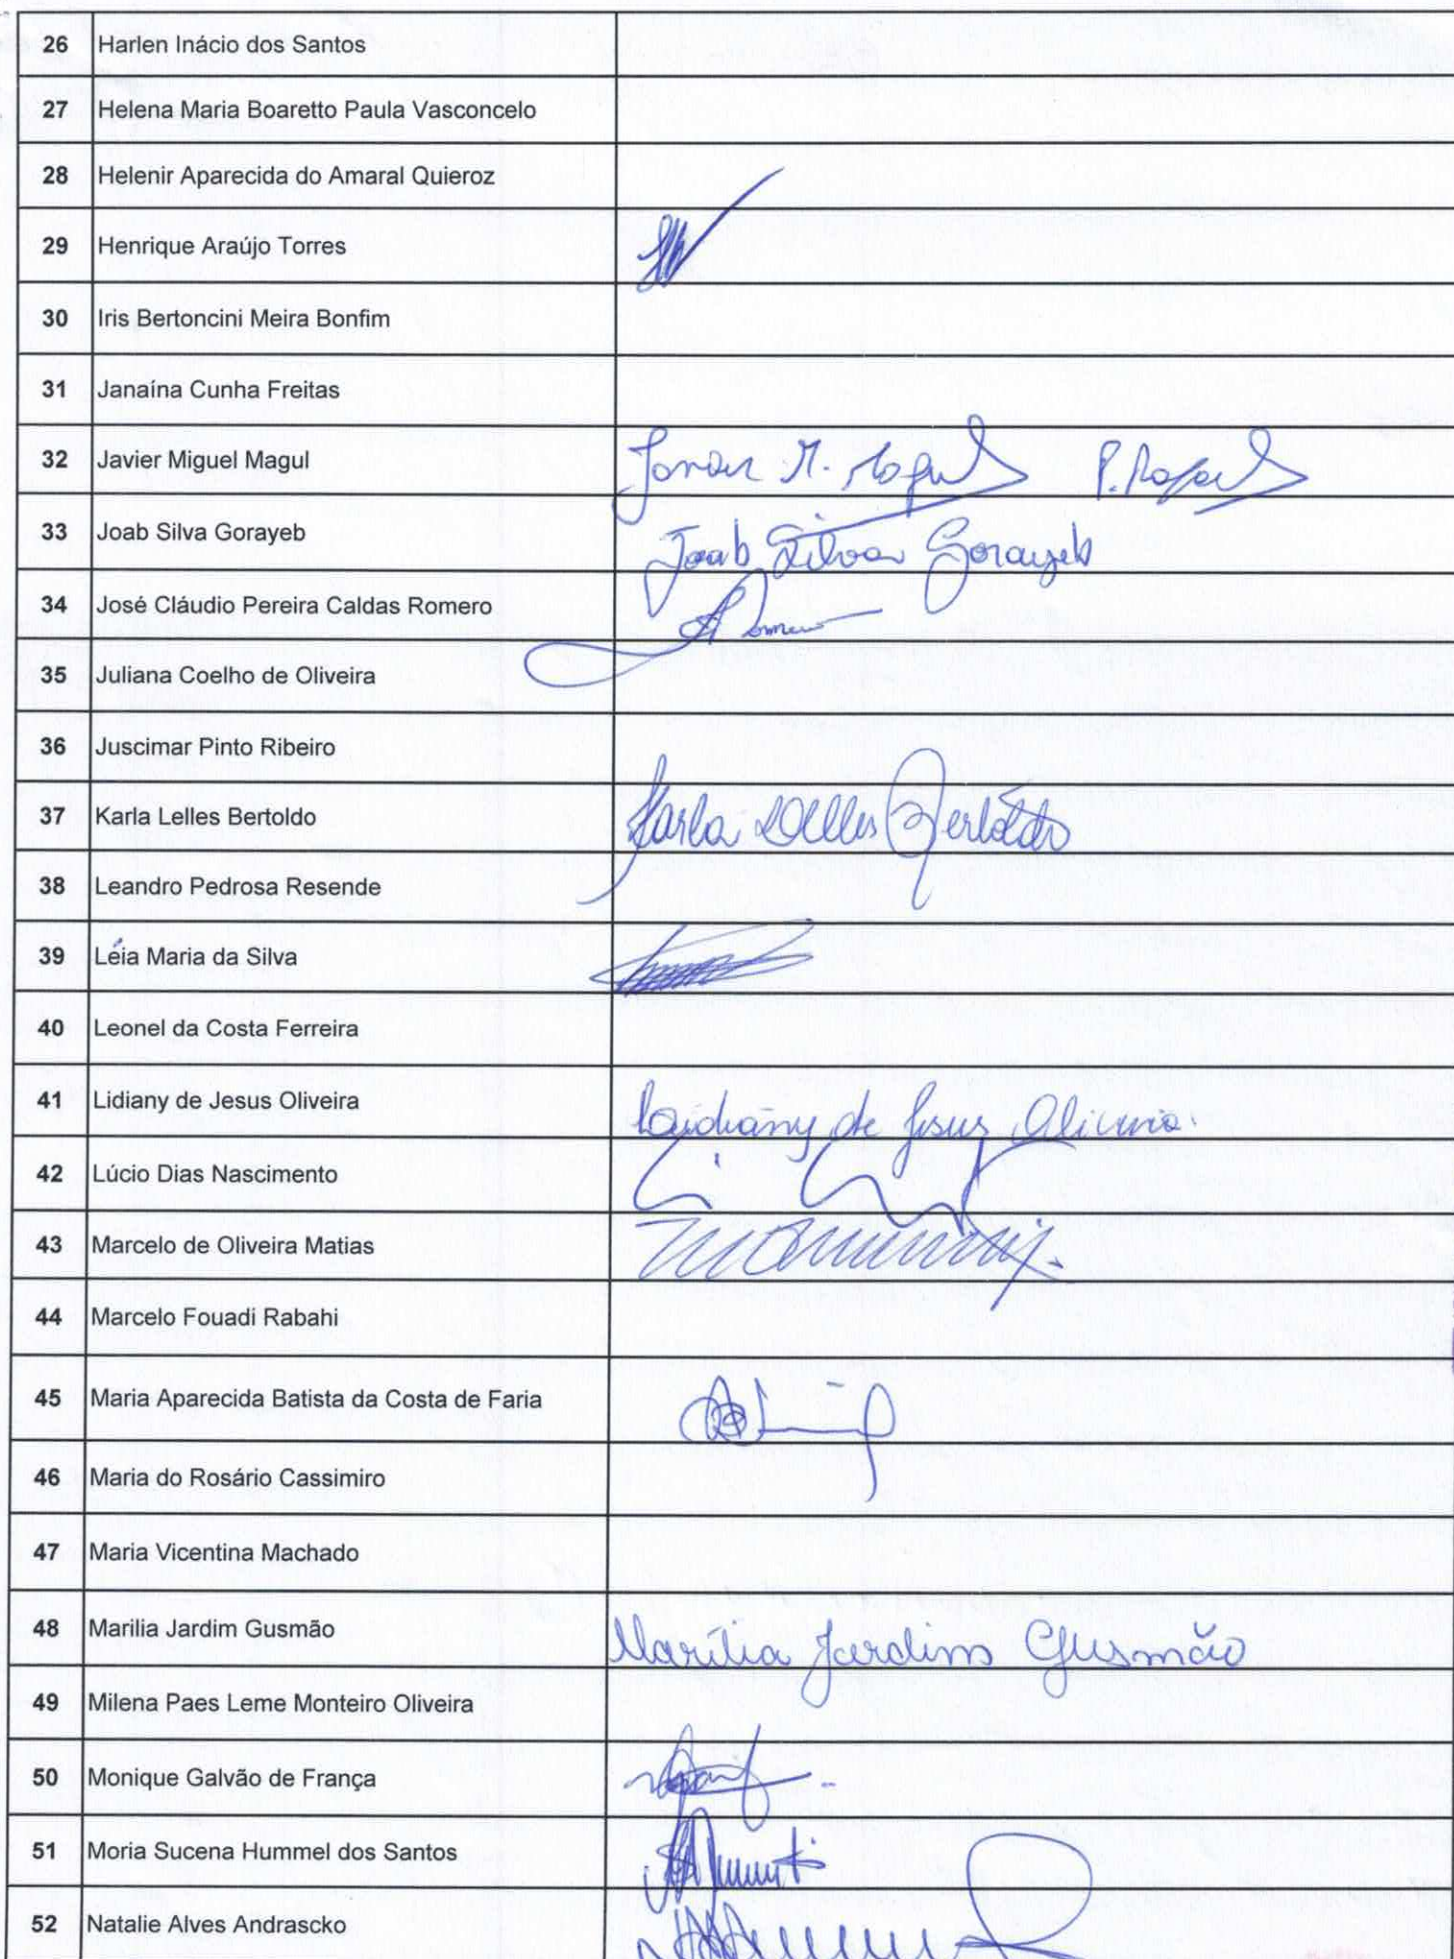 26 Harlen Inácio dos Santos
27 Helena Maria Boaretto Paula Vasconcelo
28 Helenir Aparecida do Amaral Quieroz
29 Henrique Araújo Torres
30 Iris Bertoncini Meira Bonfim
31 Janaína Cunha Freitas
32 Javier Miguel Magul
33 Joab Silva Gorayeb Joab Silva Gorayeb
34 José Cláudio Pereira Caldas Romero
35 Juliana Coelho de Oliveira
36 Juscimar Pinto Ribeiro
37 Karla Lelles Bertoldo Karla Lelles Bertoldo
38 Leandro Pedrosa Resende
39 Léia Maria da Silva
40 Leonel da Costa Ferreira
41 Lidiany de Jesus Oliveira Lidiany de Jesus Oliveira
42 Lúcio Dias Nascimento
43 Marcelo de Oliveira Matias
44 Marcelo Fouadi Rabahi
45 Maria Aparecida Batista da Costa de Faria
46 Maria do Rosário Cassimiro
47 Maria Vicentina Machado
48 Marilia Jardim Gusmão Marília Jardim Gusmão
49 Milena Paes Leme Monteiro Oliveira
50 Monique Galvão de França
51 Moria Sucena Hummel dos Santos
52 Natalie Alves Andrascko